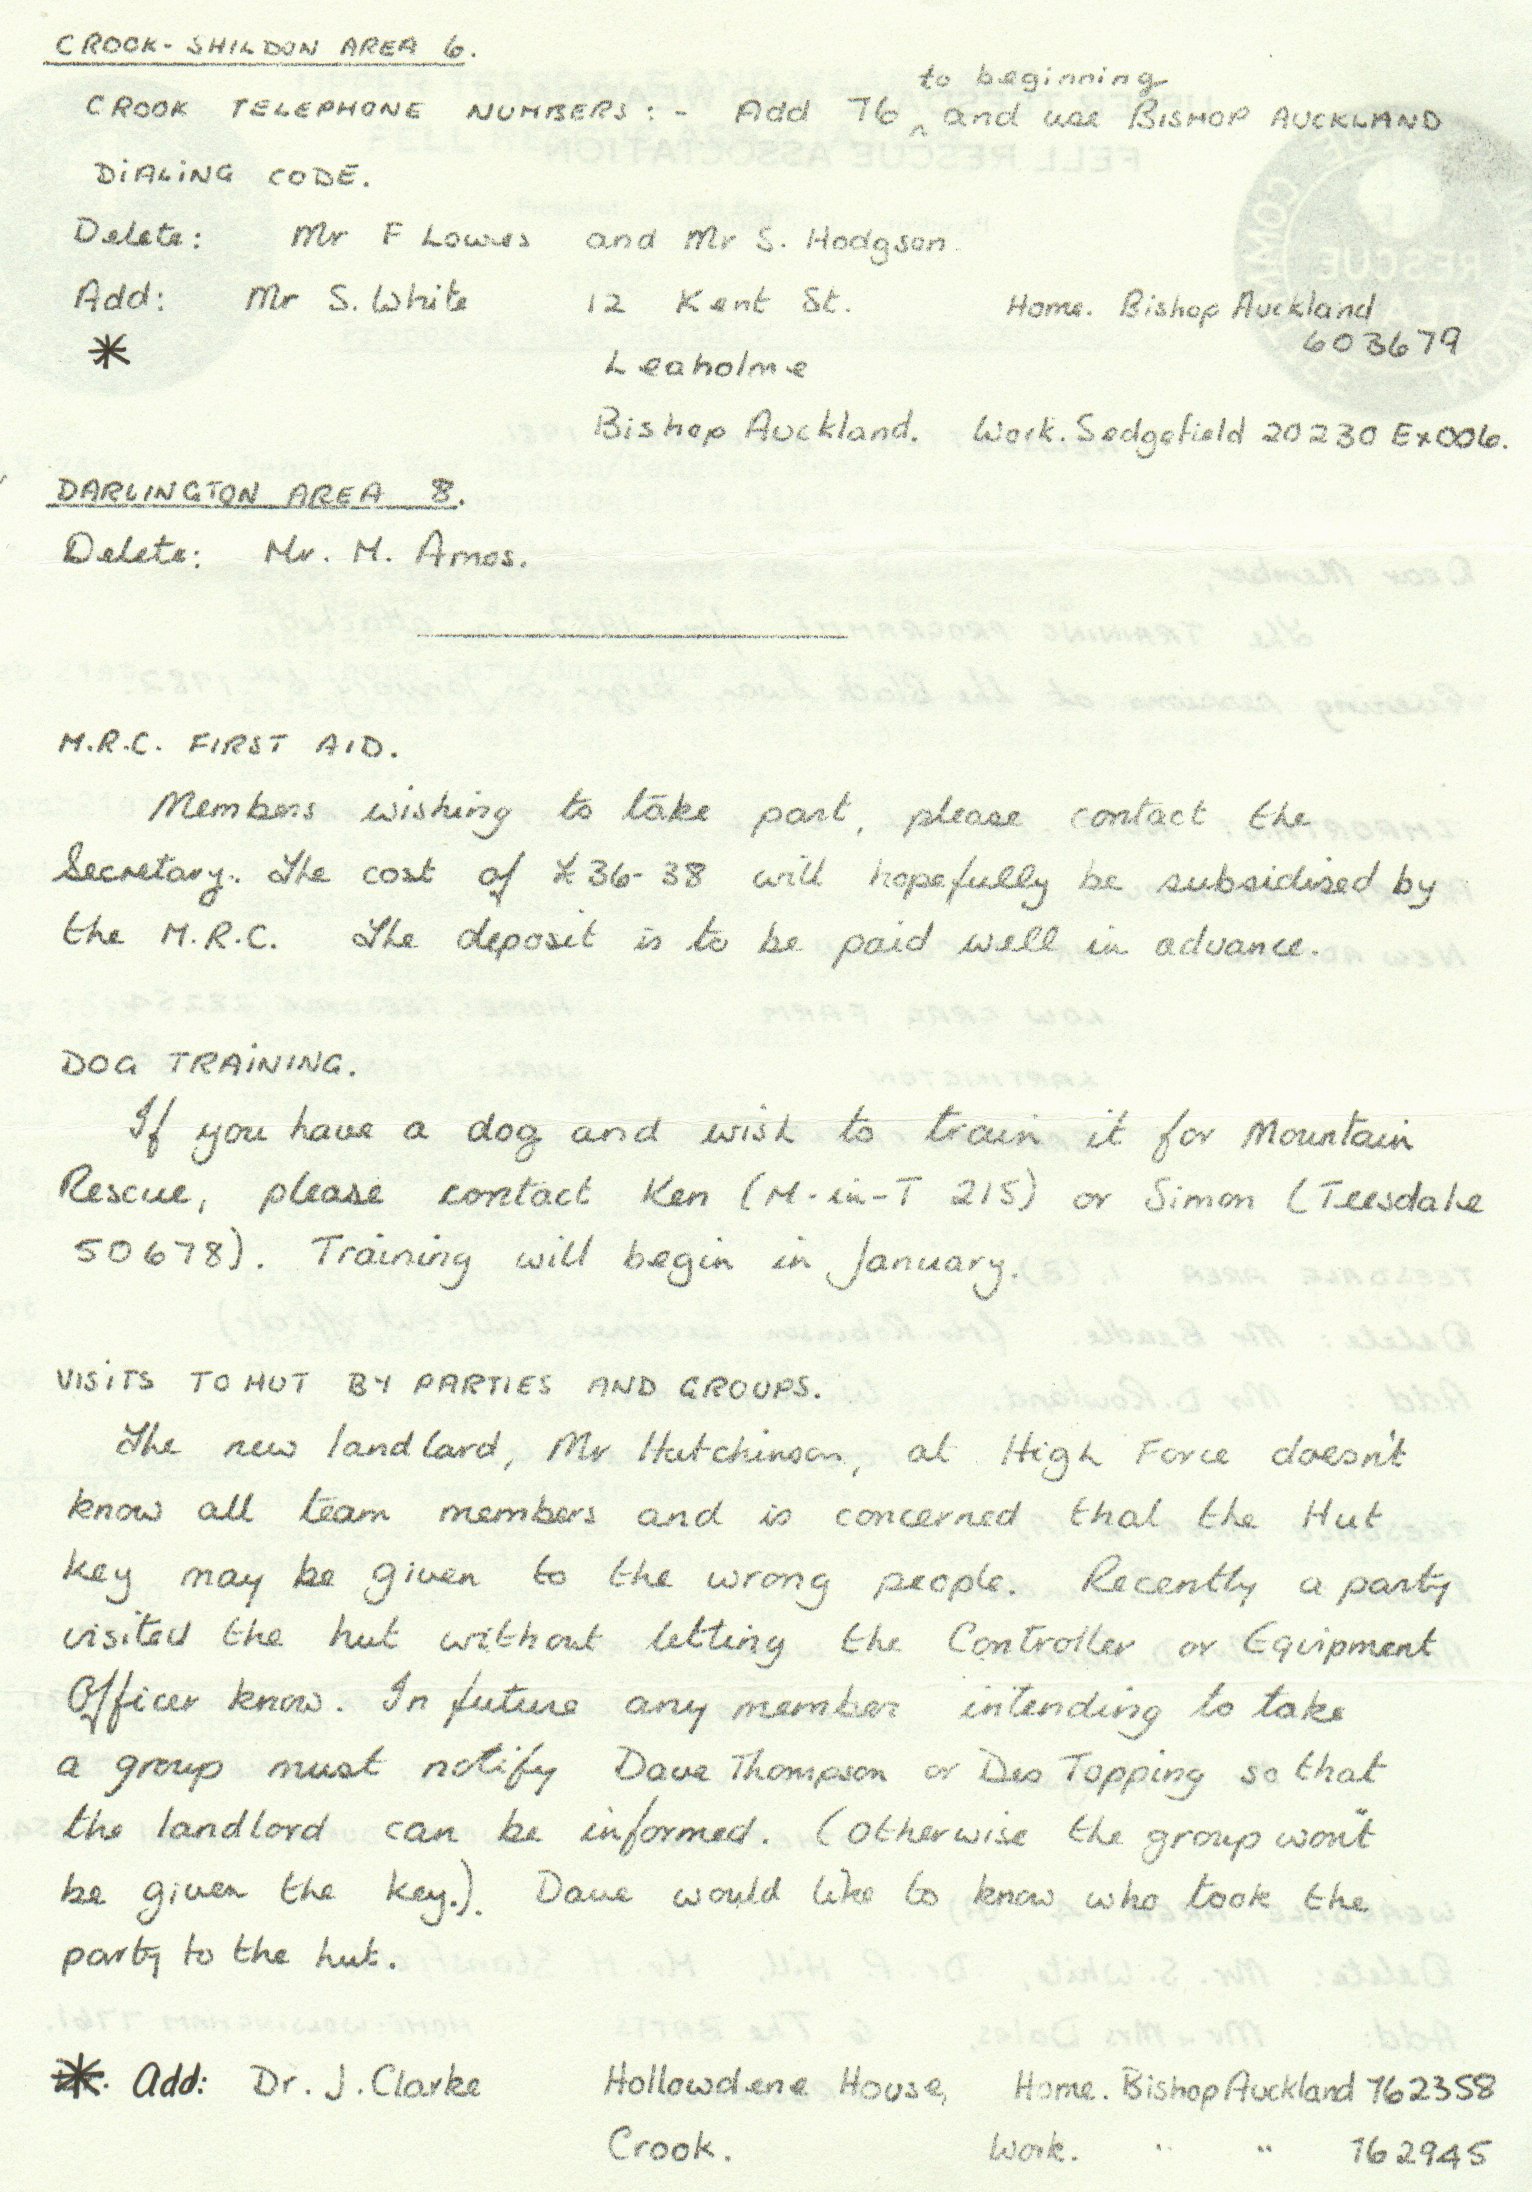 CROOK-SHILDON AREA 6.
to beginning
CROOK TELEPHONE NUMBERS:- Add 76 ^ and use BISHOP AUCKLAND
DIALING CODE.
Delete: Mr F Lowes and Mr S. Hodgson
Add: Mr S. White 12 Kent St. Home. Bishop Auckland
* 603679
Leaholme
Bishop Auckland. Work. Sedgefield 20230 Ex 006.
DARLINGTON AREA 8.
Delete: Mr. M. Amos.
M.R.C. FIRST AID.
Members wishing to take part, please contact the
Secretary. The cost of £36-38 will hopefully be subsidised by
the M.R.C. The deposit is to be paid well in advance.
DOG TRAINING.
If you have a dog and wish to train it for Mountain
Rescue, please contact Ken (M-in-T 215) or Simon (Teesdale
50678). Training will begin in January.
VISITS TO HUT BY PARTIES AND GROUPS.
The new landlard, Mr Hutchinson, at High Force doesn't
know all team members and is concerned that the Hut
key may be given to the wrong people. Recently a party
visited the hut without letting the Controller or Equipment
Officer know. In future any member intending to take
a group must notify Dave Thompson or Des Topping so that
the landlord can be informed. (Otherwise the group won't
be given the key.). Dave would like to know who took the
party to the hut.
* Add: Dr. J. Clarke Hollowdene House, Home. Bishop Auckland 762358
Crook. Work. " " 762945